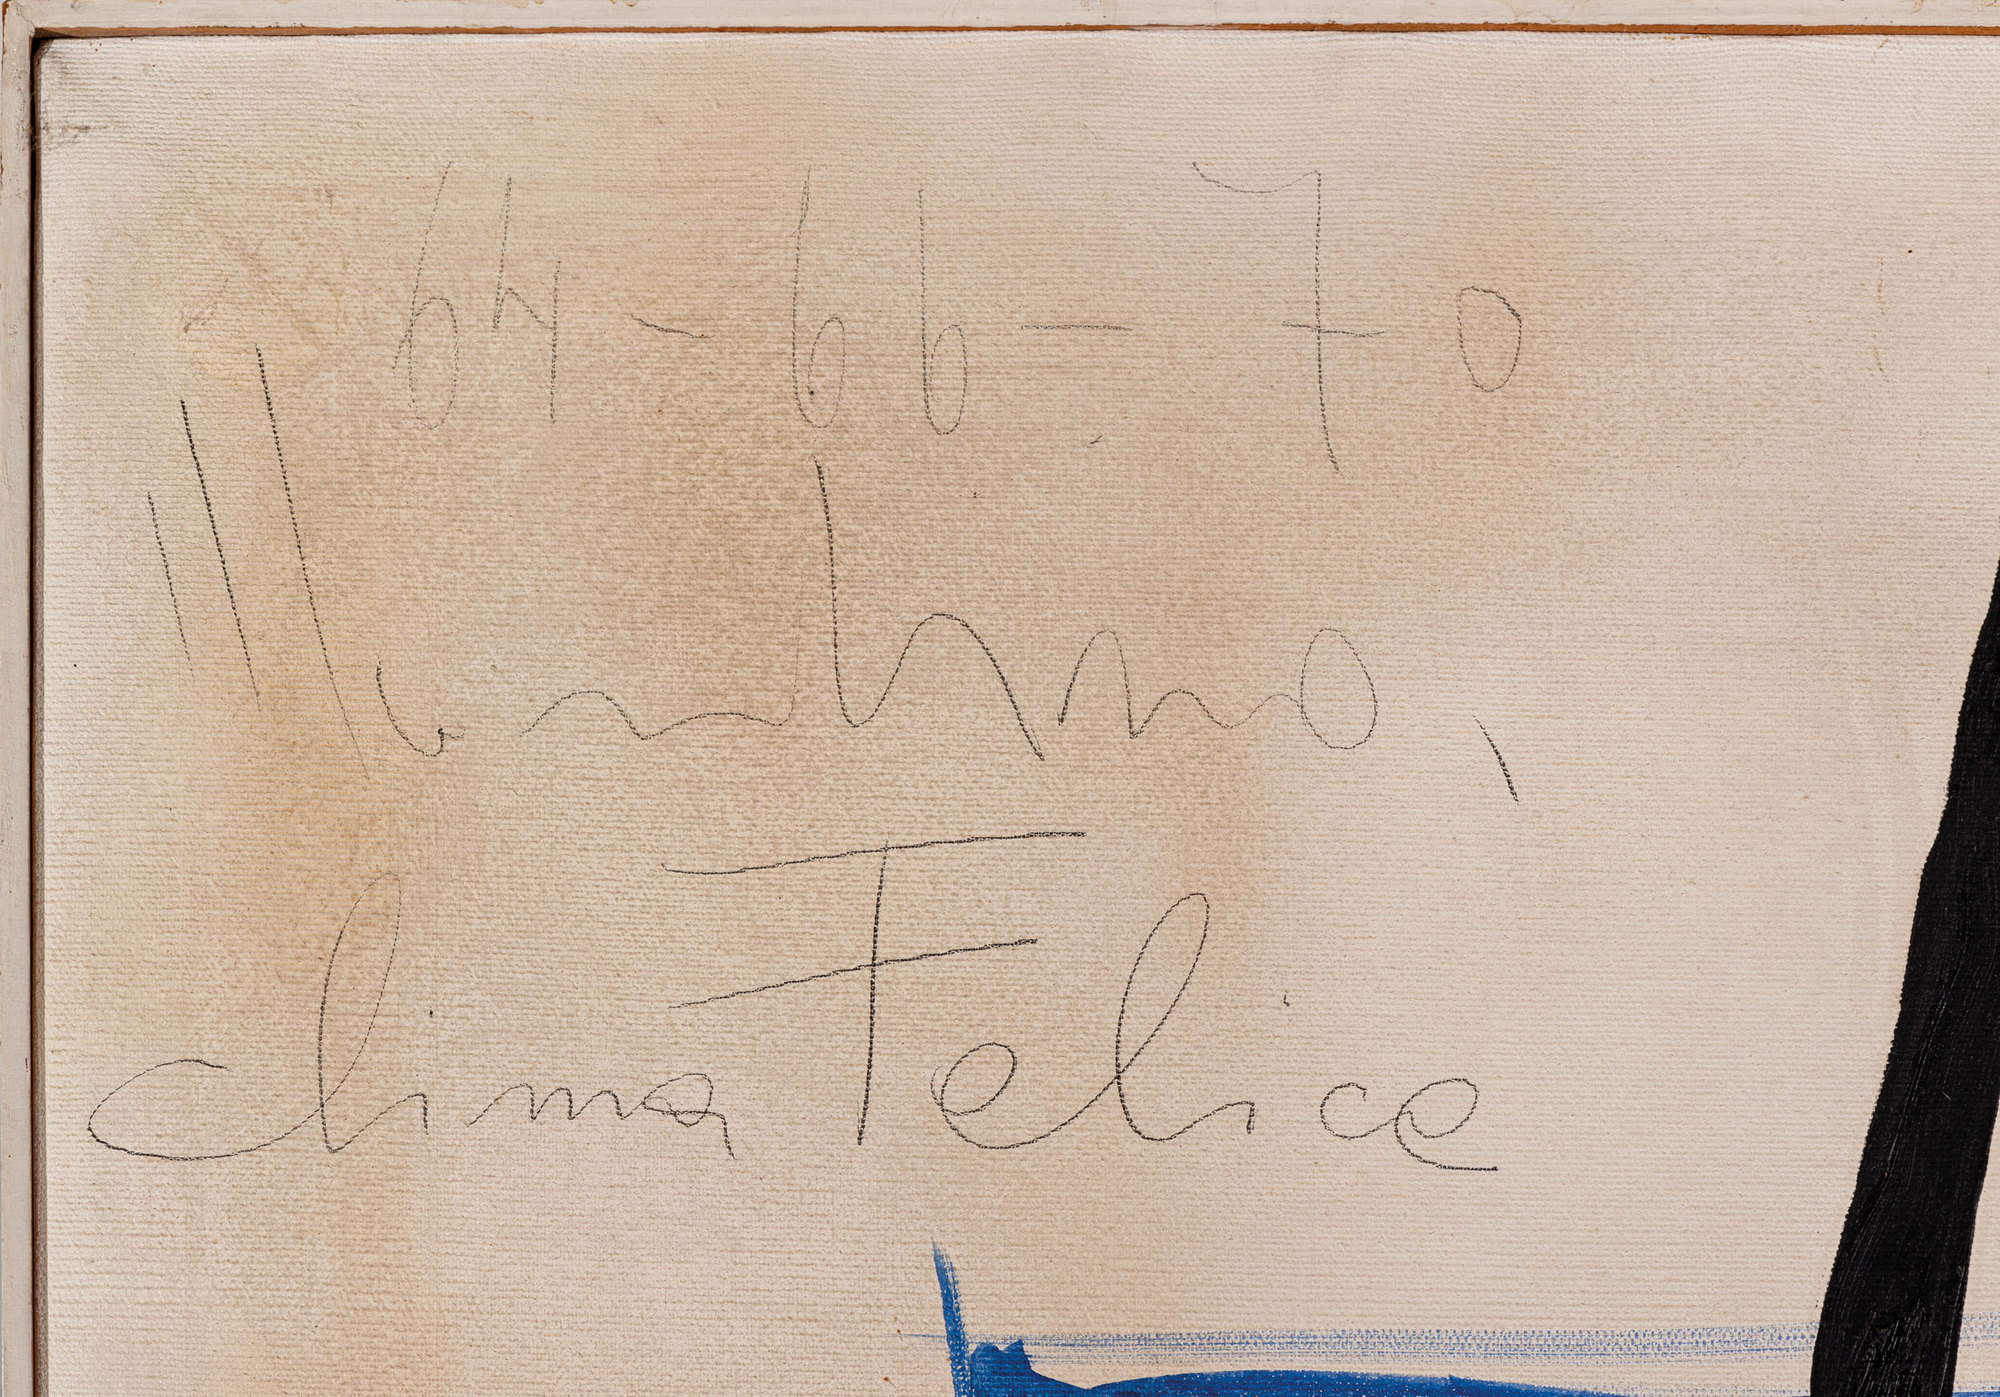 64 - 66 - 70
clima Felice